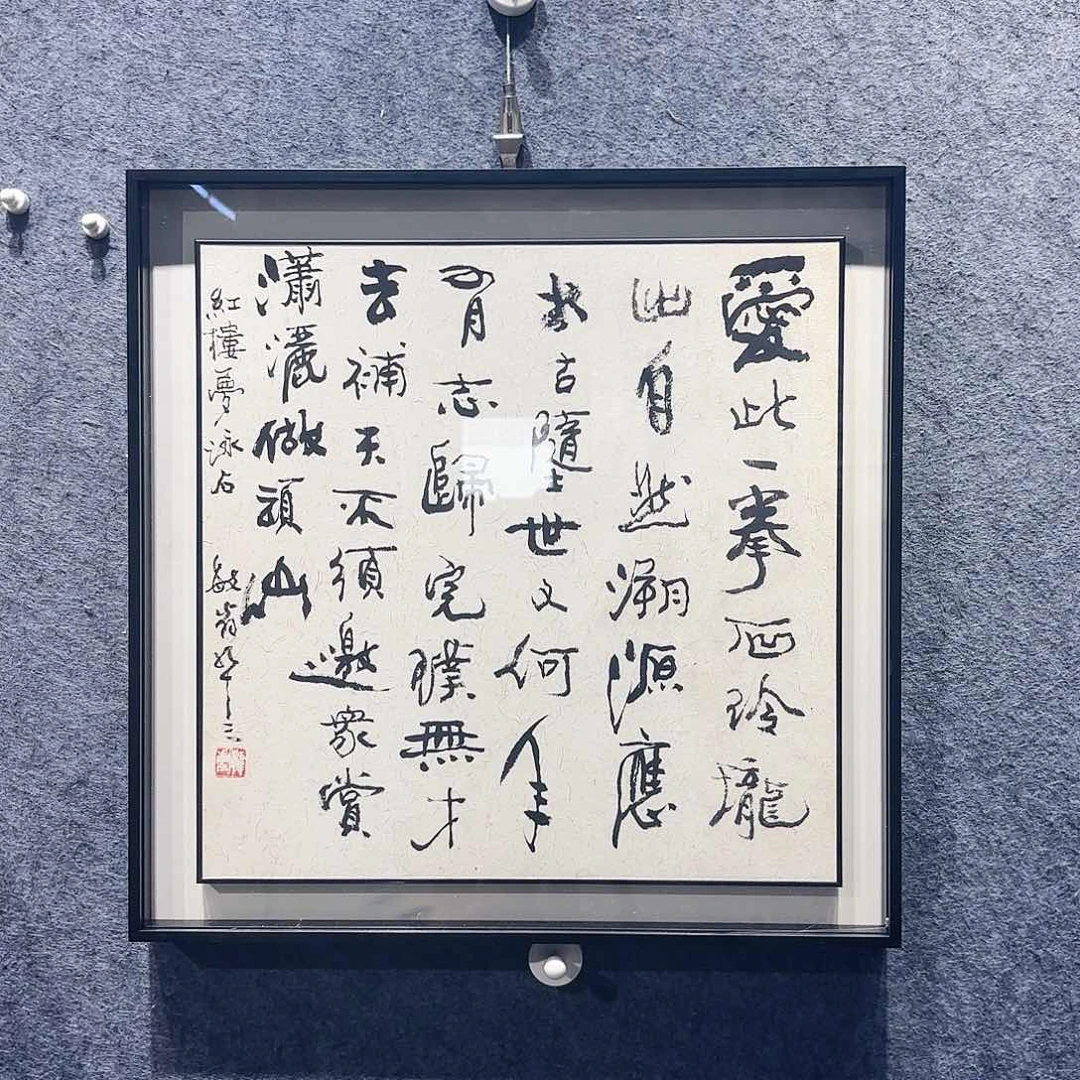 愛此一拳石玲瓏
出自然溯源應
太古墮世又何年
有志歸完璞無才
去補天不須邀衆賞
瀟灑做頑仙
紅樓夢詠石